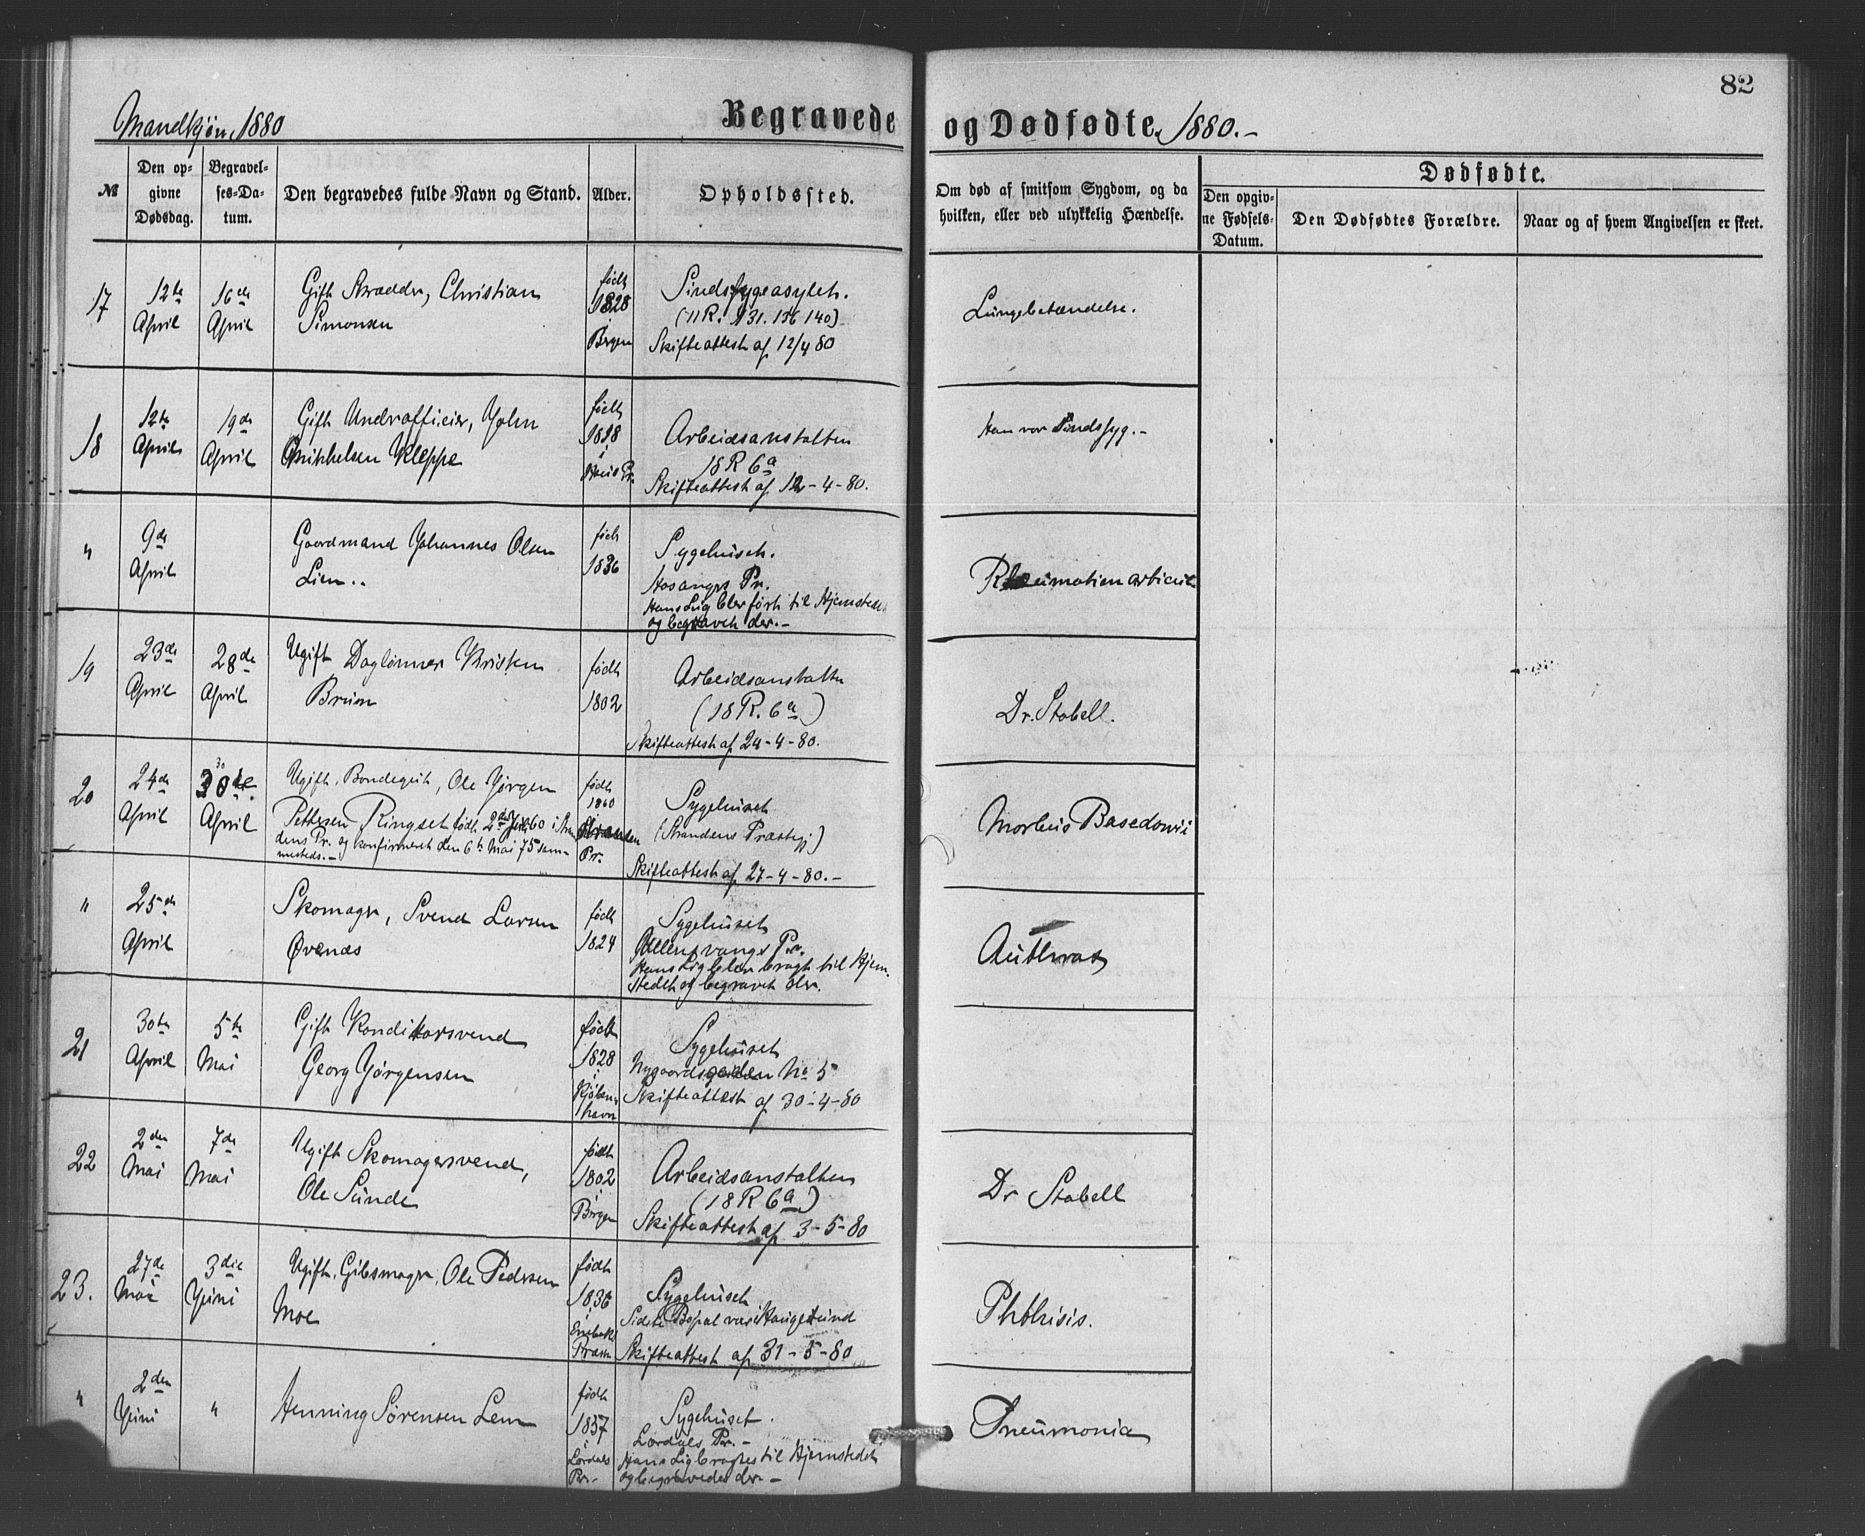 82
Mandkjøn, 1880
Begravede og Dødfødte. 1880.-
№
Den op-
givne
Dødsdag.
Begravel-
ses-Da-
tum.
Den begravedes fulde Navn og Stand.
Alder.
Opholdssted.
Om død af smitsom Sygdom, og da
hvilken, eller ved ulykkelig Hændelse.
Dødfødte.
Den opgiv-
ne Fødsels-
Datum.
Den Dødfødtes Forældre.
Naar og af hvem Angivelsen er skeet.
17
12te
April
16de
April
Gift Skrædder, Christian
Simonsen
født
1828
i
Bergen
Sindssygeasylet.
(11 R. 131. 156 140)
Skifteattest af 12/4 80
Lungebetændelse.
18
12te
April
19de
April
Gift Underofficier, John
Mikkelsen Kleppe
født
1818
i
Haus Pr.
Arbeidsanstalten
18 R 6a
Skifteattest af 12-4-80.
Han var Sindssyg.-
"
9de
April
Gaardmand Johannes Olsen
Lien..
født
1836
Sygehuset.
Hosangers Pr.
Hans Lig blev ført til Hjemstedet
og begravet der.-
Rheumatien articul
19
23de
April
28de
April
Ugift Daglønner Kristen
Bruun
født
1802
Arbeidsanstalten
(18 R. 6a)
Skifteattest af 24-4-80.
Dr. Stabell.
20
24de
April
30
30te.
April
Ugift, Bondegut, Ole Jørgen
Pettersen Ringset født 2de Juli 60 i Stran
dens Pr. og konfirmeret den 6te Mai 75 sam-
mesteds.-
født
1860
Stranden
Pr.
Sygehuset
(Strandens Præstegj)
Skifteattest af 27-4-80.-
Morbus Basedowii
"
25de
April
Skomager, Svend Larsen
Øvenæs
født
1824
Sygehuset
Ullensvangs Pr.
Hans Lig blev bragt til Hjem-
stedet og begravet der.
Anthrax
21
30te
April
5te
Mai
Gift Konditorsvend
Georg Jørgensen
født
1828
i
Kjøben-
havn
Sygehuset
Nygaardsgaden No 5
Skifteattest af 30-4-80
22
2den
Mai
7de
Mai
Ugift Skomagersvend,
Ole Sunde
født
1802
i
Bergen
Arbeidsanstalten
(18 R 6a)
Skifteattest af 3-5-80
Dr Stabell
23.
27de
Mai
3die
Juni
Ugift, Gibsmager, Ole Pedersen
Moe
født
1836
i
Sygehuset
Sidste Bopæl var i Haugesund
Skifteattest af 31-5-80
Phthisis.
"
2den
Juni
"
Henning Sørensen Lem
født
1857
i
Lærdals
Pr.
Sygehuset.
Lærdals Pr.-
Hans Lig bragtes til Hjemstedet
og begravedes der.-
Pneumonia